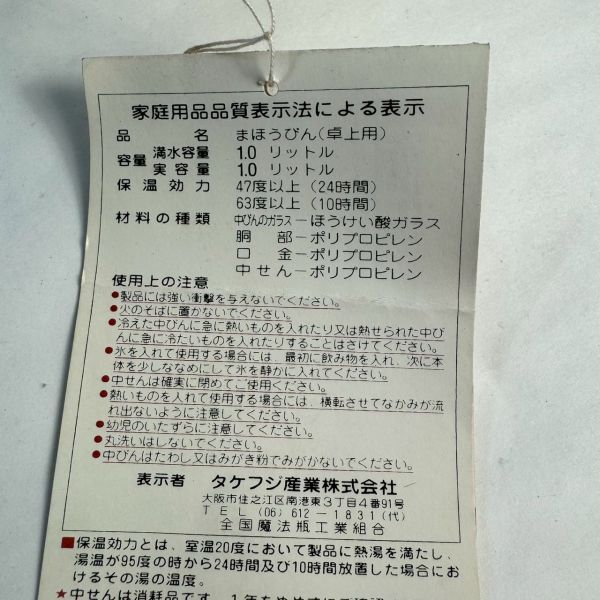 家庭用品品質表示法による表示
品名 まほうびん(卓上用)
容量 満水容量 1.0 リットル
実容量 1.0 リットル
保温効力 47度以上 (24時間)
63度以上 (10時間)
材料の種類 中びんのガラスーほうけい酸ガラス
胴部ーポリプロピレン
口金ーポリプロピレン
中せんーポリプロピレン
使用上の注意
●製品には強い衝撃を与えないでください。
●火のそばに置かないでください。
●冷えた中びんに急に熱いものを入れたり又は熱せられた中び
んに急に冷たいものを入れたりすることはさけてください。
●氷を入れて使用する場合には、最初に飲み物を入れ、次に本
体を少しななめにして氷を静かに入れてください。
●中せんは確実に閉めてご使用ください。
●熱いものを入れて使用する場合には、横転させてなかみが流
れ出ないように注意してください。
●幼児のいたずらに注意してください。
●丸洗いはしないでください。
●中びんはたわし又はみがき粉でみがかないでください。
表示者 タケフジ産業株式会社
大阪市住之江区南港東3丁目4番91号
TEL (06) 612-1831(代)
全国魔法瓶工業組合
■保温効力とは、室温20度において製品に熱湯を満たし、
湯温が95度の時から24時間及び10時間放置した場合にお
けるその湯の温度。
★中せんは消耗品です。